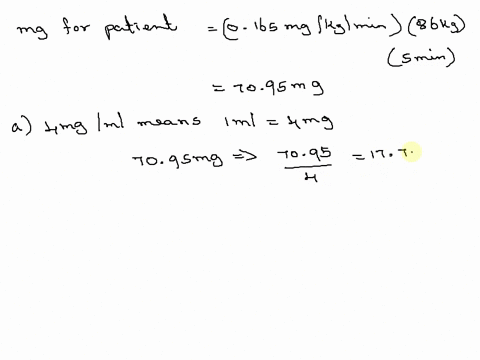 mg for patient = (0.165 mg/kg/min) (86kg)
(5min)
= 70.95 mg
a) 4mg/ml means 1ml = 4mg
70.95mg => 70.95/4 = 17.7